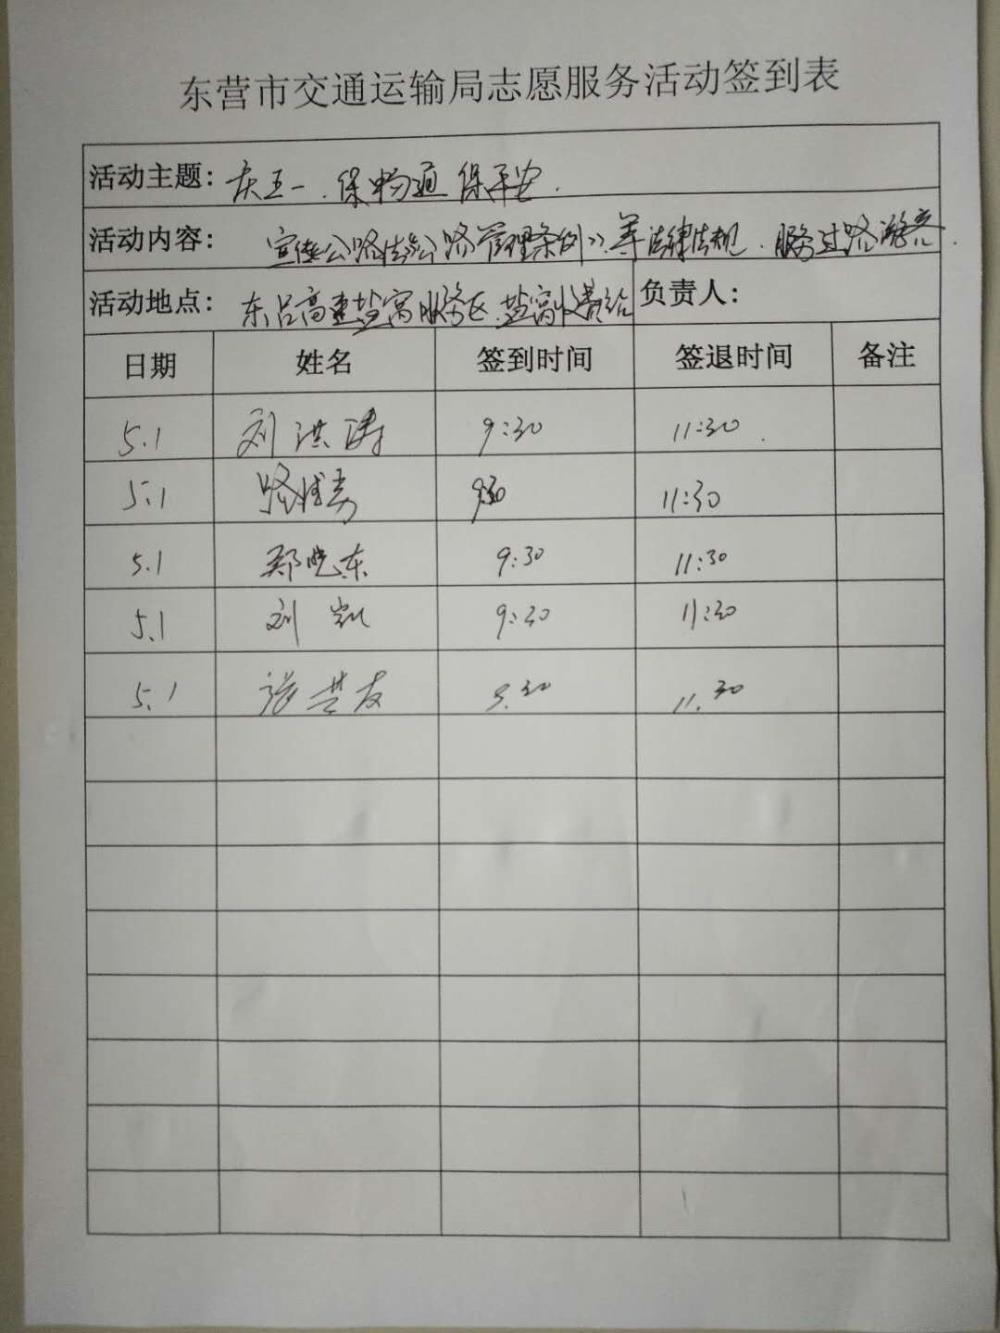 东营市交通运输局志愿服务活动签到表
活动主题: 庆五一.保畅通 保平安.
活动内容: 宣传公路法公路管理条例》等法律法规.服务过路游客.
活动地点: 东吕高速盐窝服务区.盐窝收费站 负责人:
日期 姓名 签到时间 签退时间 备注
5.1 刘洪涛 9:30 11:30.
5.1 路 9:30 11:30
5.1 郑晓东 9:30 11:30
5.1 刘凯 9:30 11:30
5.1 友 9.30 11.30